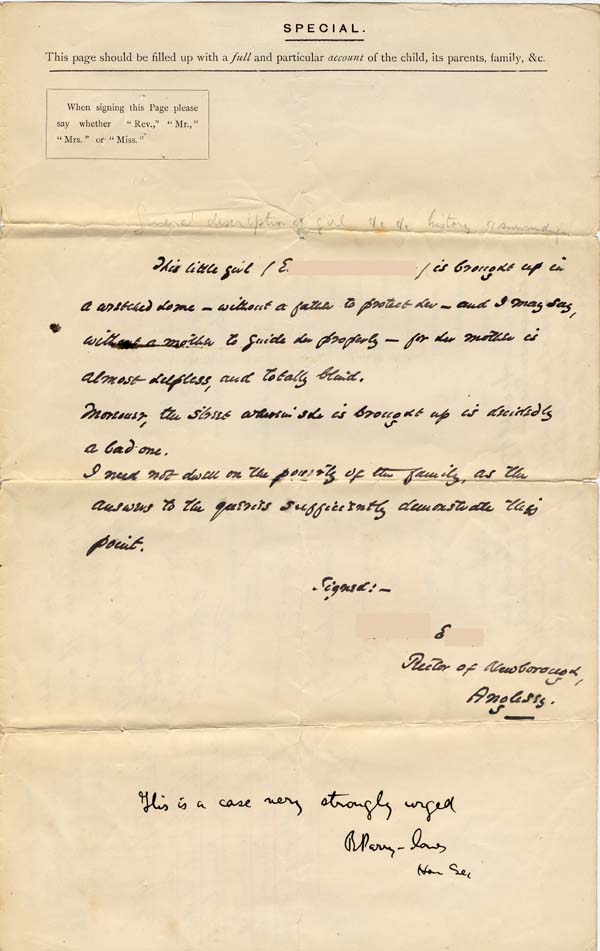 SPECIAL.
This page should be filled up with a full and particular account of the child, its parents, family, &c.
When signing this Page please
say whether "Rev.," "Mr.,"
"Mrs." or "Miss."
General description of girl &c &c. history
This little girl (E. ) is brought up in
a wretched home – without a father to protect her – and I may say,
without a mother to guide her properly – for her mother is
almost helpless, and totally blind.
Moreover, the street wherein she is brought up is decidedly
a bad one.
I need not dwell on the poverty of the family, as the
answers to the queries sufficiently demonstrate this
point.
Signed:–
E
Rector of Newborough,
Anglesey.
This is a case very strongly urged
R Parry-Jones
Hon Sec